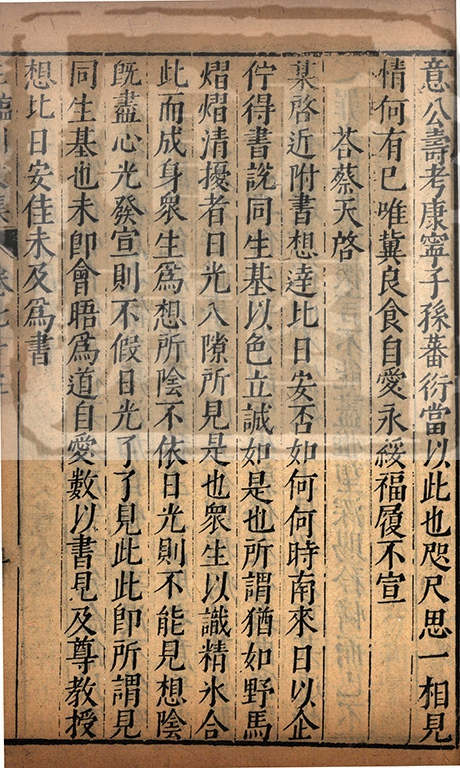 意公壽考康寧子孫蕃衍當以此也咫尺思一相見
情何有已唯冀良食自愛永綏福履不宣
荅蔡天啓
某啓近附書想達比日安否如何何時南來日以企
佇得書說同生基以色立誠如是也所謂猶如野馬
熠熠清擾者日光入隙所見是也衆生以識精氷合
此而成身衆生爲想所隂不依日光則不能見想隂
旣盡心光發宣則不假日光了了見此此卽所謂見
同生基也未卽會晤爲道自愛數以書見及尊教授
想比日安佳未及爲書